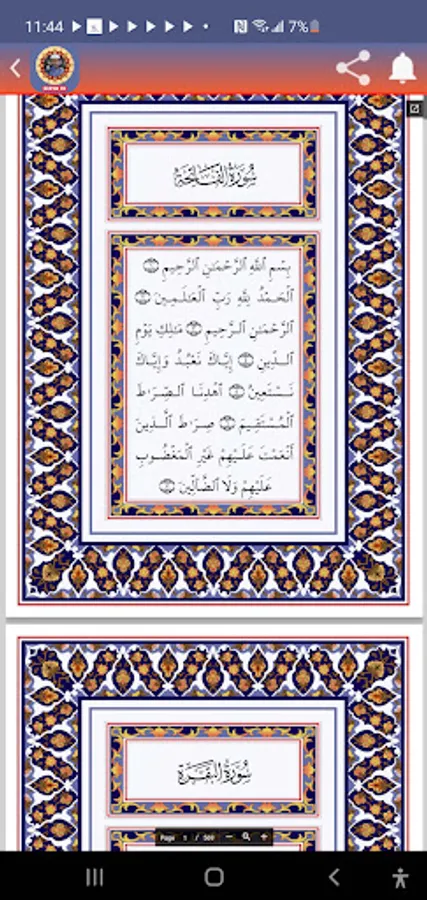 11:44
7%
سُورَةُ الْفَاتِحَةِ
بِسْمِ ٱللَّهِ ٱلرَّحْمَٰنِ ٱلرَّحِيمِ
ٱلْحَمْدُ لِلَّهِ رَبِّ ٱلْعَٰلَمِينَ
ٱلرَّحْمَٰنِ ٱلرَّحِيمِ مَٰلِكِ يَوْمِ
ٱلدِّينِ إِيَّاكَ نَعْبُدُ وَإِيَّاكَ
نَسْتَعِينُ ٱهْدِنَا ٱلصِّرَٰطَ
ٱلْمُسْتَقِيمَ صِرَٰطَ ٱلَّذِينَ
أَنْعَمْتَ عَلَيْهِمْ غَيْرِ ٱلْمَغْضُوبِ
عَلَيْهِمْ وَلَا ٱلضَّآلِّينَ
سُورَةُ الْبَقَرَةِ
Page 1 /